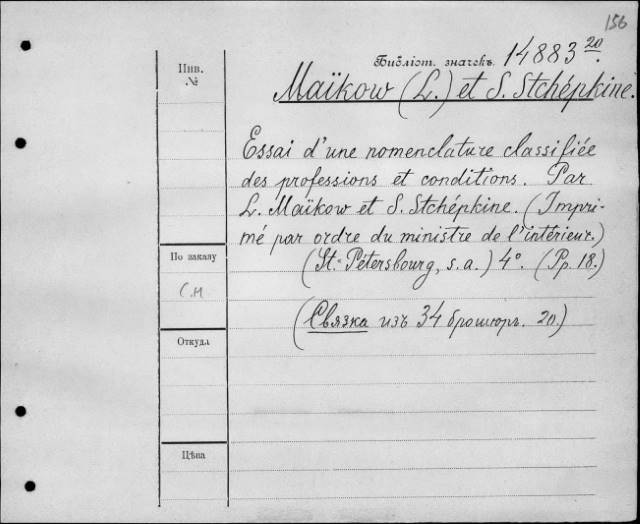 156
Библіот. значекъ 14883 20.
Инв.
№
Maïkow (L.) et S. Stchépkine.
Essai d'une nomenclature classifiée
des professions et conditions. Par
L. Maïkow et S. Stchépkine. (Impri-
mé par ordre du ministre de l'intérieur.)
(St.-Pétersbourg, s. a.) 4°. (Pp. 18.)
По заказу
С.И
(Связка изъ 34 брошюръ. 20.)
Откуда
Цѣна